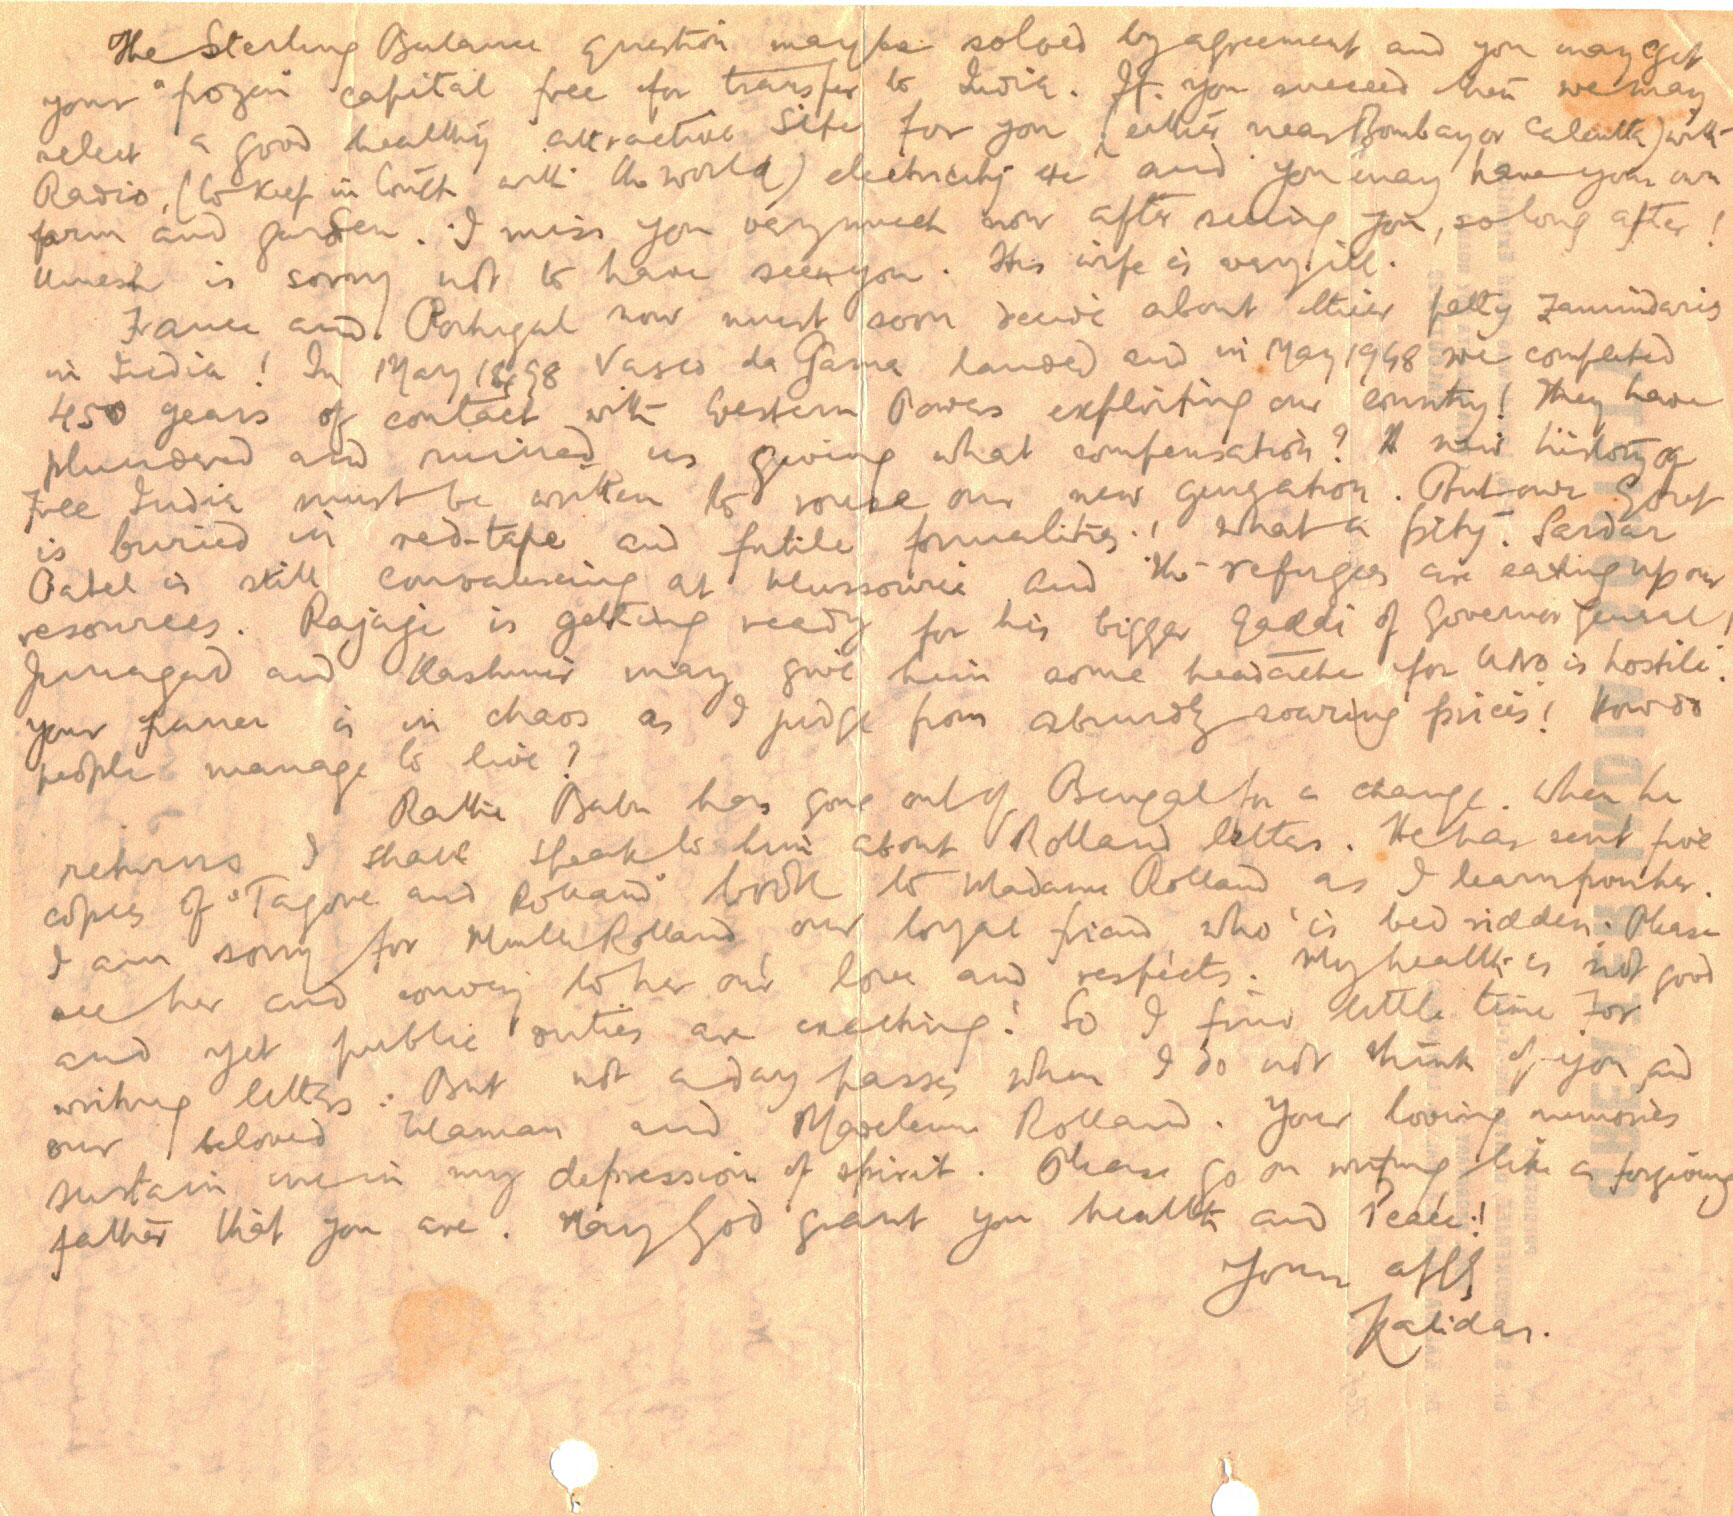 The Sterling Balance question may be solved by agreement and you may get
your "frozen capital free for transfer to India. If you succeed then we may
select a good healthy attractive site for you (either near Bombay or Calcutta) with
Radio, (to keep in touch with the world) electricity etc and you may have your own
farm and garden. I miss you very much now after seeing you, so long after!
Umesh is sorry not to have seen you. His wife is very ill.
France and Portugal now must soon decide about their petty Zamindaris
in India! In May 1498 Vasco da Gama landed and in May 1948 we completed
450 years of contact with Western Powers exploiting our country! They have
plundered and ruined us giving what compensation? A new history of
Free India must be written to rouse our new generation. But our Govt
is buried in red-tape and futile formalities! What a pity. Sardar
Patel is still convalescing at Mussourie and the refugees are eating up our
resources. Rajaji is getting ready for his bigger Gaddi of Governor General!
Junagad and Kashmir may give him some headache for UNO is hostile.
Your France is in chaos as I judge from absurdly soaring prices! How do
people manage to live?
Rathi Babu has gone out of Bengal for a change. When he
returns I shall speak to him about Rolland letters. He has sent five
copies of "Tagore and Rolland" book to Madame Rolland as I learn from her.
I am sorry for Mlle Rolland our loyal friend who is bed ridden. Please
see her and convey to her our love and respects. My health is not good
and yet public duties are exacting! So I find little time for
writing letters. But not a day passes when I do not think of you and
our beloved and Madeleine Rolland. Your loving memories
sustain me in my depression of spirit. Please go on writing like a forgiving
father that you are. May God grant you health and Peace!
Your affly
Kalidas.